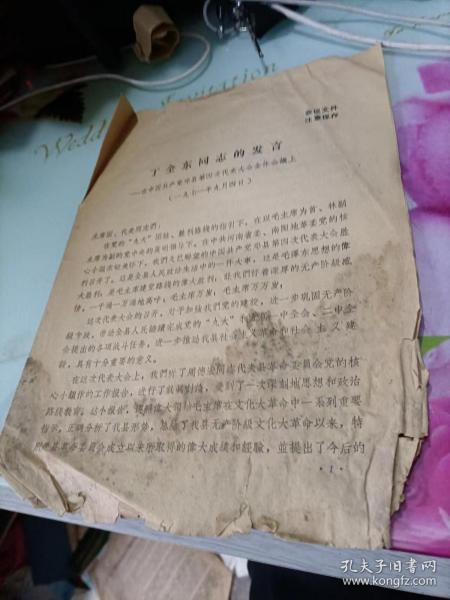 会议文件
注意保存
丁全东同志的发言
——在中国共产党邓县第四次代表大会全体会议上
(一九七一年九月四日)
主席团、代表同志们：
在党的“九大”团结、胜利路线的指引下，在以毛主席为首、林副
主席为副的党中央的英明领导下，在中共河南省委、南阳地革委党的核
心小组亲切关怀下，我们久已盼望的中国共产党邓县第四次代表大会胜
利召开了。这是全县人民政治生活中的一件大事，这是毛泽东思想的伟
大胜利，是毛主席建党路线的伟大胜利，让我们怀着深厚的无产阶级感
情，一千遍一万遍地高呼：毛主席万岁！毛主席万万岁！
这次代表大会的召开，对于加强我们党的建设，进一步巩固无产阶
级专政，劳动全县人民继续完成党的“九大”和九届一中全会、二中全
会提出的各项战斗任务，进一步推动我县社会主义革命和社会主义建
设，具有十分重要的意义。
在这次代表大会上，我们听了周德
同志代表县革命委员会党的核
心小组作的工作报告，进行了认真讨论，受到了一次深刻地思想和政治
路线教育。这个报告，
毛主席在文化大革命中一系列重要
指示，正确分析了我县形势，总结了我县无产阶级文化大革命以来，特
县革命委员会成立以来所取得的伟大成绩和经验，并提出了今后的
·1·
Wedding
Invitation
孔夫子旧书网
www.kongfz.com